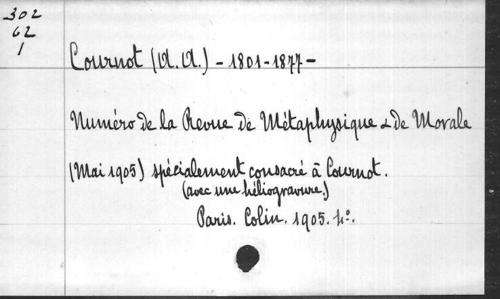 302
62
1
Cournot (A. A.) - 1801-1877 -
Numéro de la Revue de Métaphysique & de Morale
(Mai 1905) spécialement consacré à Cournot.
(avec une héliogravure.)
Paris. Colin. 1905. 4°.